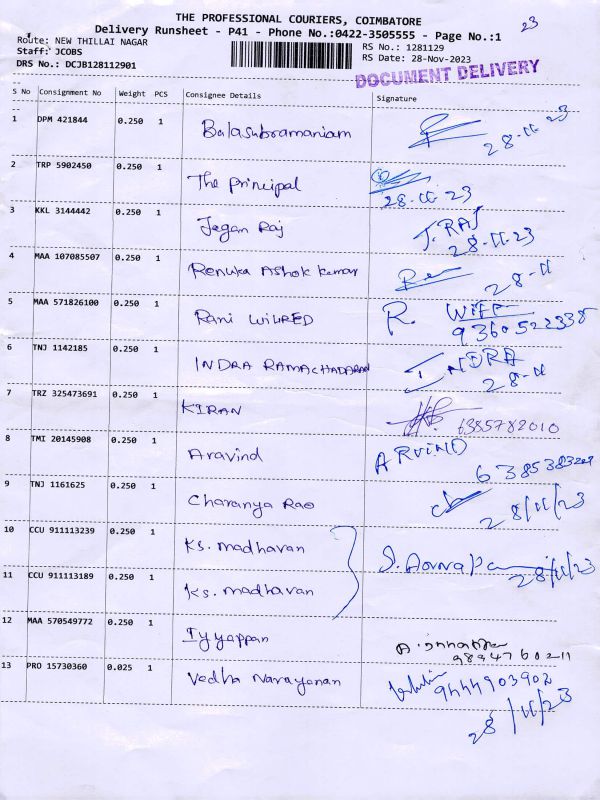 23
THE PROFESSIONAL COURIERS, COIMBATORE
Delivery Runsheet - P41 - Phone No.:0422-3505555 - Page No.:1
Route: NEW THILLAI NAGAR
RS No.: 1281129
Staff: JCOBS
RS Date: 28-Nov-2023
DRS No.: DCJB128112901
DOCUMENT DELIVERY
S No Consignment No Weight PCS Consignee Details Signature
1 DPM 421844 0.250 1 Balasubramaniam 28-11-23
2 TRP 5902450 0.250 1 The Principal 28-11-23
3 KKL 3144442 0.250 1 Jegan Raj J.RAJ 28-11-23
4 MAA 107085507 0.250 1 Renuka Ashok kumar 28-11
5 MAA 571826100 0.250 1 Rani WILRED R. WIFE 9360522338
6 TNJ 1142185 0.250 1 INDRA RAMACHADARAN INDRA 28-11
7 TRZ 325473691 0.250 1 KIRAN 6385782010
8 TMI 20145908 0.250 1 Aravind ARVIND
9 TNJ 1161625 0.250 1 Charanya Rao 28/11/23
10 CCU 911113239 0.250 1 Ks. madhavan
11 CCU 911113189 0.250 1 Ks. madhavan 28/11/23
12 MAA 570549772 0.250 1 Iyyappan
13 PRO 15730360 0.025 1 Vedha Narayanan 9444903902
28/11/23